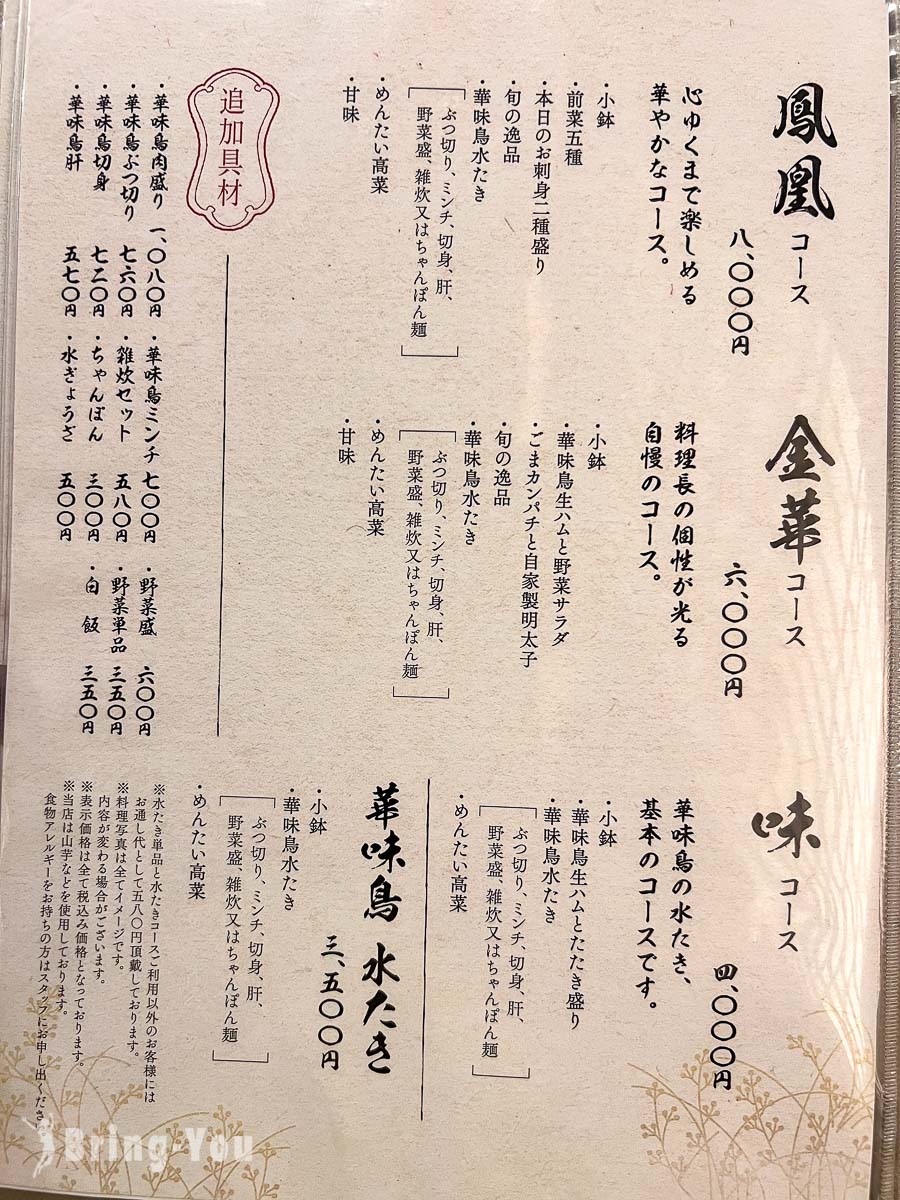 鳳凰コース
八、〇〇〇円
心ゆくまで楽しめる
華やかなコース。
・小鉢
・前菜五種
・本日のお刺身二種盛り
・旬の逸品
・華味鳥水たき
ぶつ切り、ミンチ、切身、肝、
野菜盛、雑炊又はちゃんぽん麺
・めんたい高菜
・甘味
金華コース
六、〇〇〇円
料理長の個性が光る
自慢のコース。
・小鉢
・華味鳥生ハムと野菜サラダ
・ごまカンパチと自家製明太子
・旬の逸品
・華味鳥水たき
ぶつ切り、ミンチ、切身、肝、
野菜盛、雑炊又はちゃんぽん麺
・めんたい高菜
・甘味
味コース
四、〇〇〇円
華味鳥の水たき、
基本のコースです。
・小鉢
・華味鳥生ハムとたたき盛り
・華味鳥水たき
ぶつ切り、ミンチ、切身、肝、
野菜盛、雑炊又はちゃんぽん麺
・めんたい高菜
華味鳥 水たき
三、五〇〇円
・小鉢
・華味鳥水たき
ぶつ切り、ミンチ、切身、肝、
野菜盛、雑炊又はちゃんぽん麺
・めんたい高菜
追加具材
・華味鳥肉盛り 一、〇八〇円
・華味鳥ぶつ切り 七六〇円
・華味鳥切身 七二〇円
・華味鳥肝 五七〇円
・華味鳥ミンチ 七〇〇円
・雑炊セット 五八〇円
・ちゃんぽん 三〇〇円
・水ぎょうざ 五〇〇円
・野菜盛 六〇〇円
・野菜単品 三五〇円
・白飯 三五〇円
※水たき単品と水たきコースご利用以外のお客様には
お通し代として五八〇円頂戴しております。
※料理写真は全てイメージです。
内容が変わる場合がございます。
※表示価格は全て税込み価格となっております。
※当店は山芋などを使用しております。
食物アレルギーをお持ちの方はスタッフにお申し出くださ
Bring-You